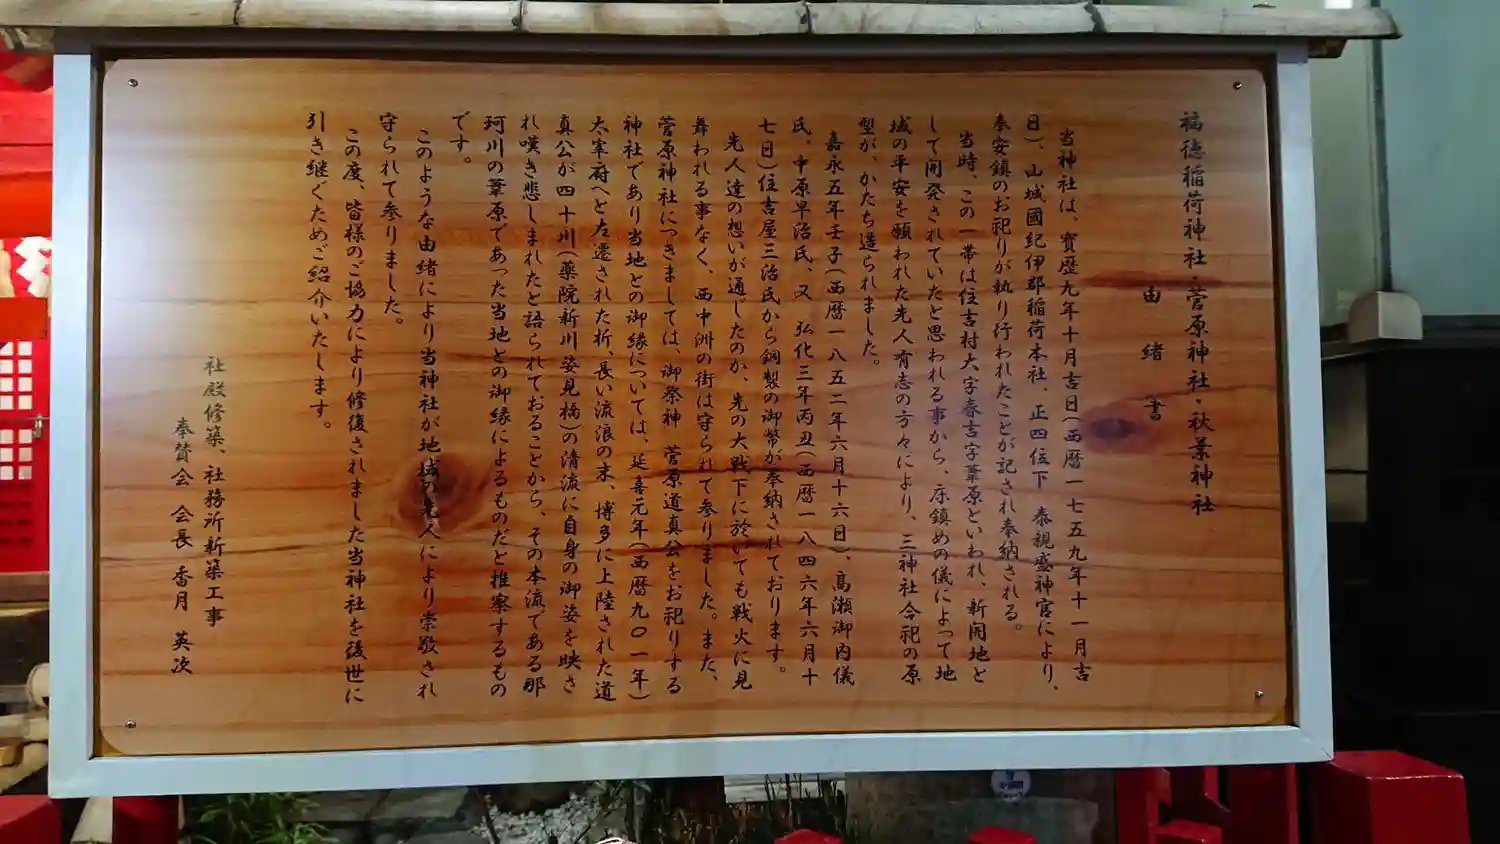 福徳稲荷神社 菅原神社・秋葉神社
由緒書
当神社は、寳歴九年十月吉日(西暦一七五九年十一月吉
日)、山城國紀伊郡稲荷本社、正四位下 泰親盛神官により、
奉安鎮のお祀りが執り行われたことが記され奉納される。
当時、この一帯は住吉村大字春吉字葦原といわれ、新開地と
して開発されていたと思われる事から、床鎮めの儀によって地
域の平安を願われた先人有志の方々により、三神社合祀の原
型が、かたち造られました。
嘉永五年壬子(西暦一八五二年六月十六日)、高瀬御内儀
氏、中原早治氏、又 弘化三年丙丑(西暦一八四六年六月十
七日)住吉屋三治氏から銅製の御幣が奉納されております。
先人達の想いが通じたのか、先の大戦下に於いても戦火に見
舞われる事なく、西中洲の街は守られて参りました。また、
菅原神社につきましては、御祭神 菅原道真公をお祀りする
神社であり当地との御縁については、延喜元年(西暦九〇一年)
太宰府へと左遷された折、長い流浪の末、博多に上陸された道
真公が四十川(薬院新川姿見橋)の清流に自身の御姿を映さ
れ嘆き悲しまれたと語られておることから、その本流である那
珂川の葦原であった当地との御縁によるものだと推察するもの
です。
このような由緒により当神社が地域の先人により崇敬され
守られて参りました。
この度、皆様のご協力により修復されました当神社を後世に
引き継ぐためご紹介いたします。
社殿修築、社務所新築工事
奉賛会 会長 香月 英次